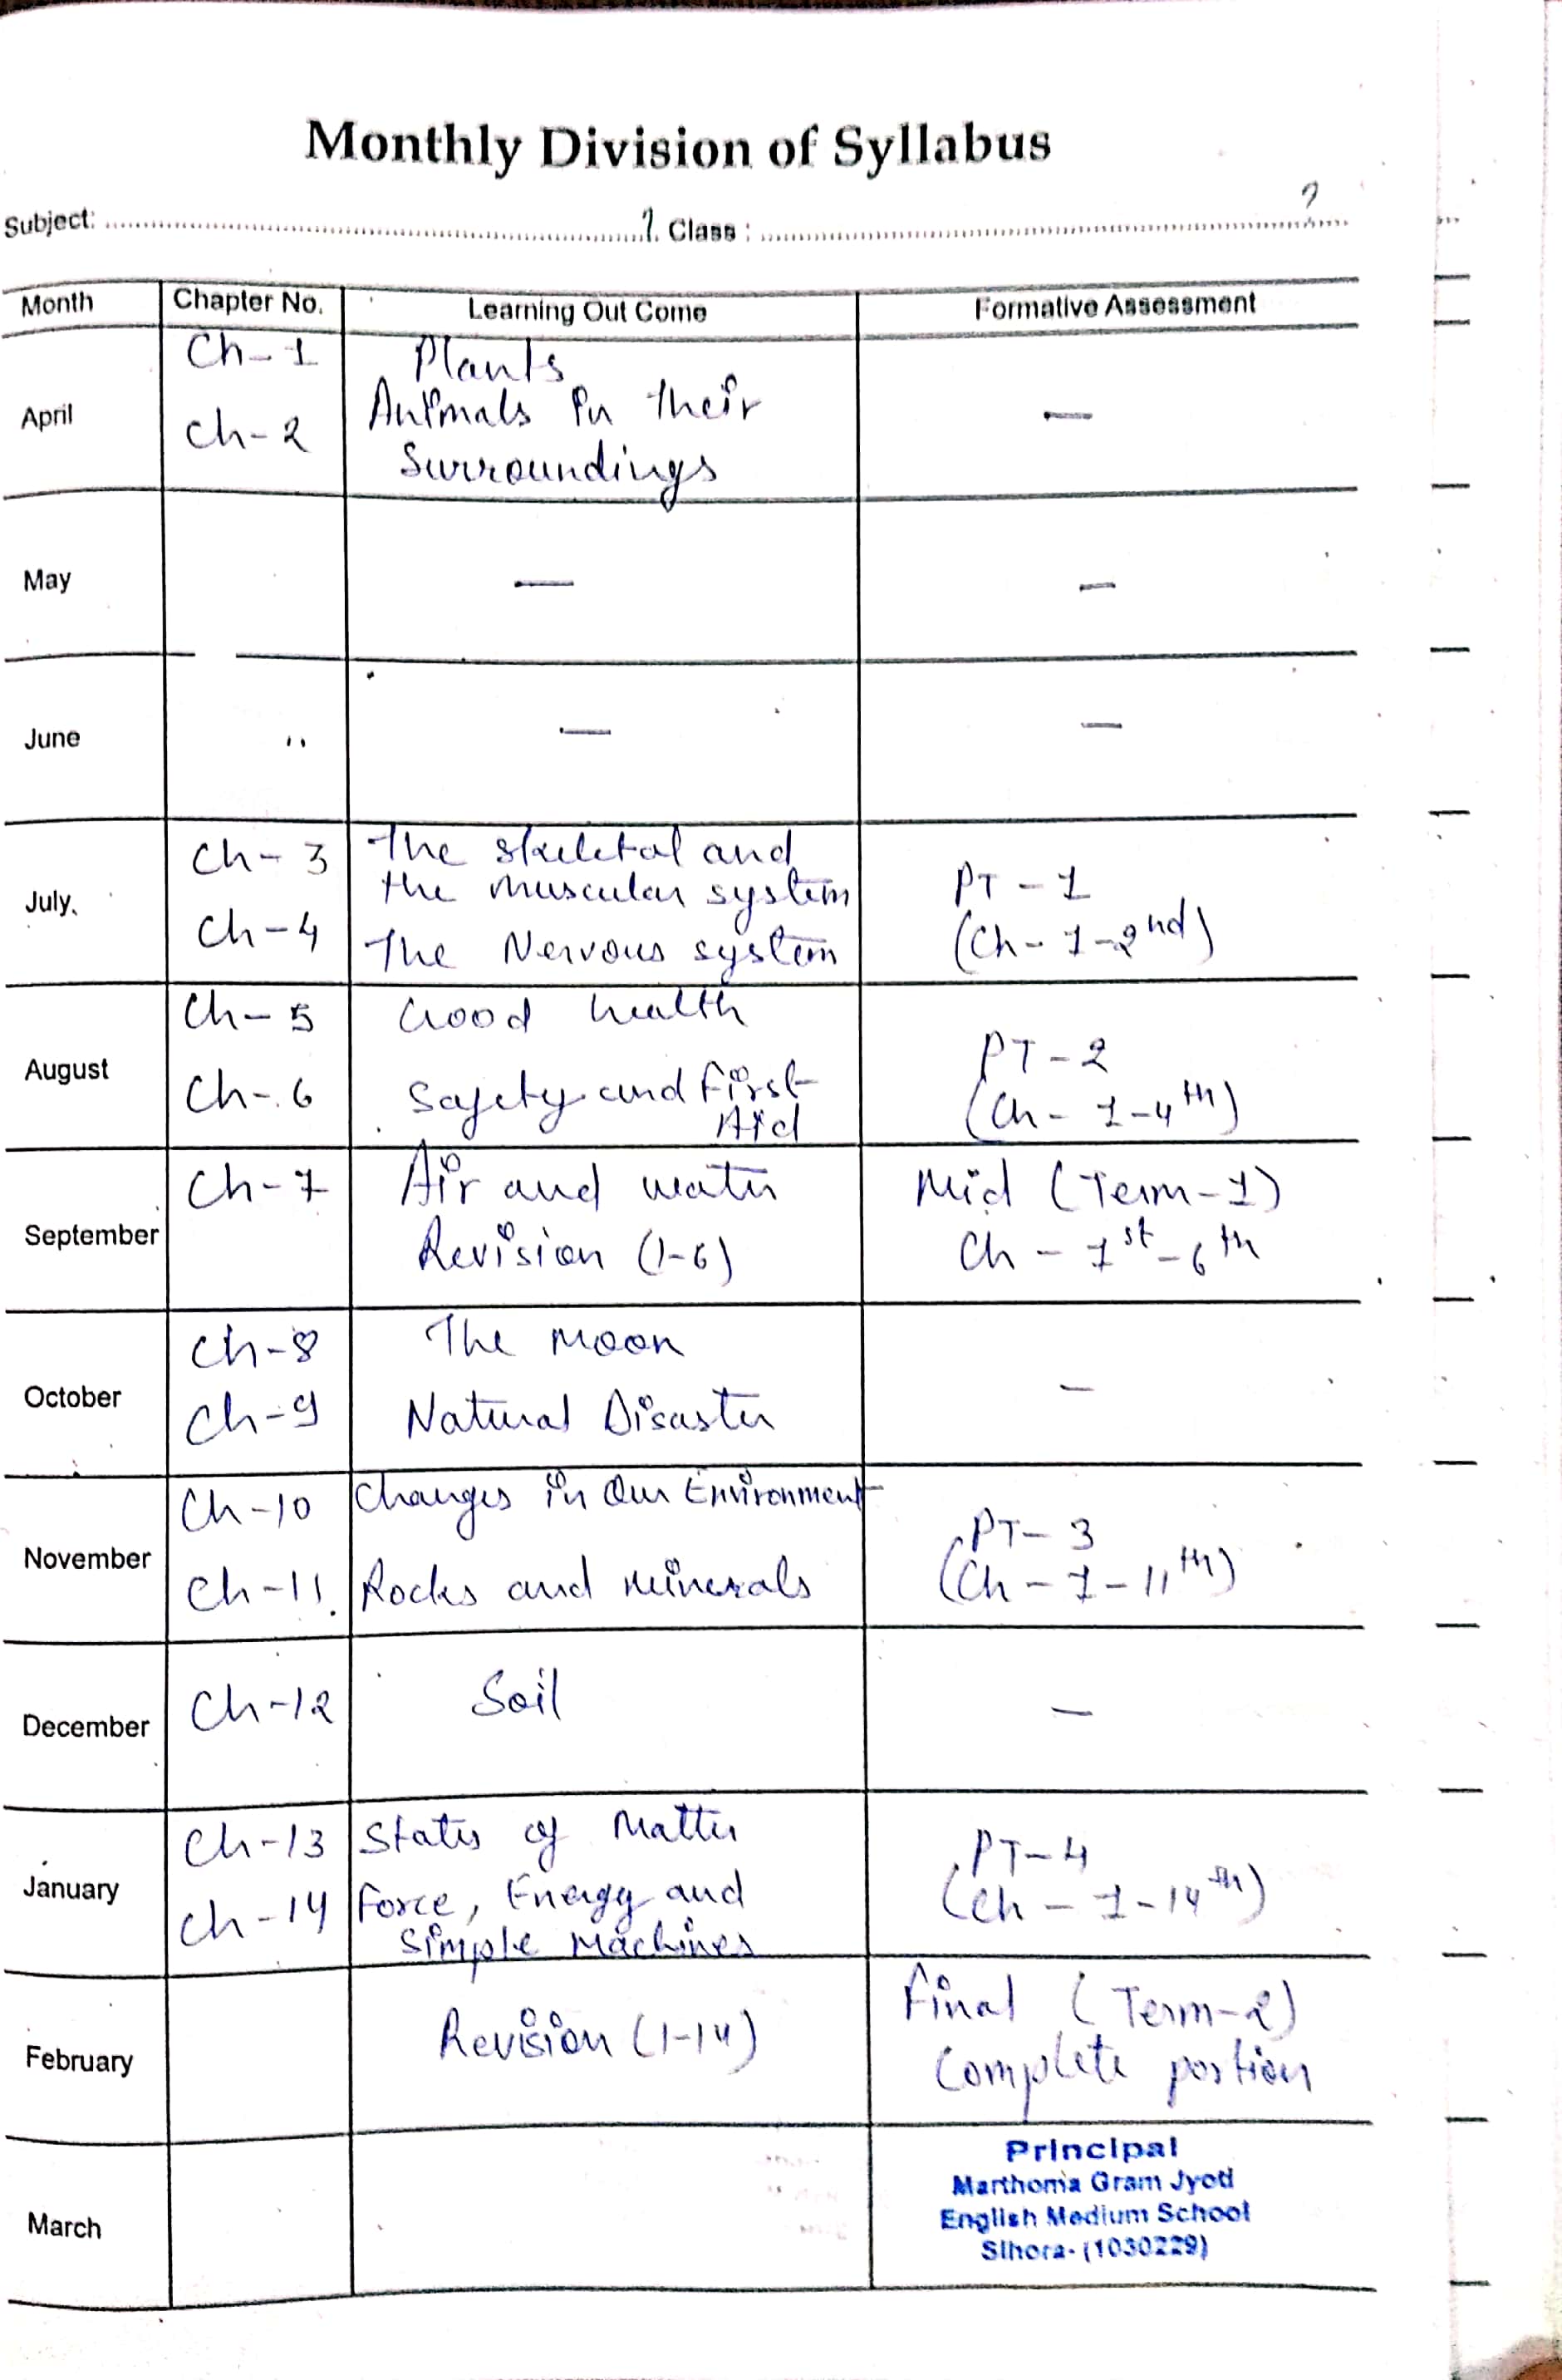 Monthly Division of Syllabus
Subject: Class :
Month Chapter No. Learning Out Come Formative Assessment
April
Ch- 1 Plants
Ch- 2 Animals in their
Surroundings
—
May — —
June — —
July
Ch- 3 The skeletal and
the muscular system
Ch-4 The Nervous system
PT - 1
(Ch- 1-2nd)
August
Ch- 5 Good health
Ch- 6 Safety and First
Aid
PT-2
(Ch- 1-4th)
September
Ch-7 Air and water
Revision (1-6)
Mid (Term-1)
Ch - 1st-6th
October
Ch-8 The Moon
Ch-9 Natural Disaster
—
November
Ch-10 Changes in Our Environment
Ch-11 Rocks and minerals
PT- 3
(Ch - 1-11th)
December
Ch-12 Soil
—
January
Ch-13 States of Matter
Ch-14 Force, Energy and
Simple Machines
PT-4
(Ch - 1-14th)
February
Revision (1-14)
Final (Term-2)
Complete portion
March
Principal
Marthoma Gram Jyoti
English Medium School
Sihora- (1030229)